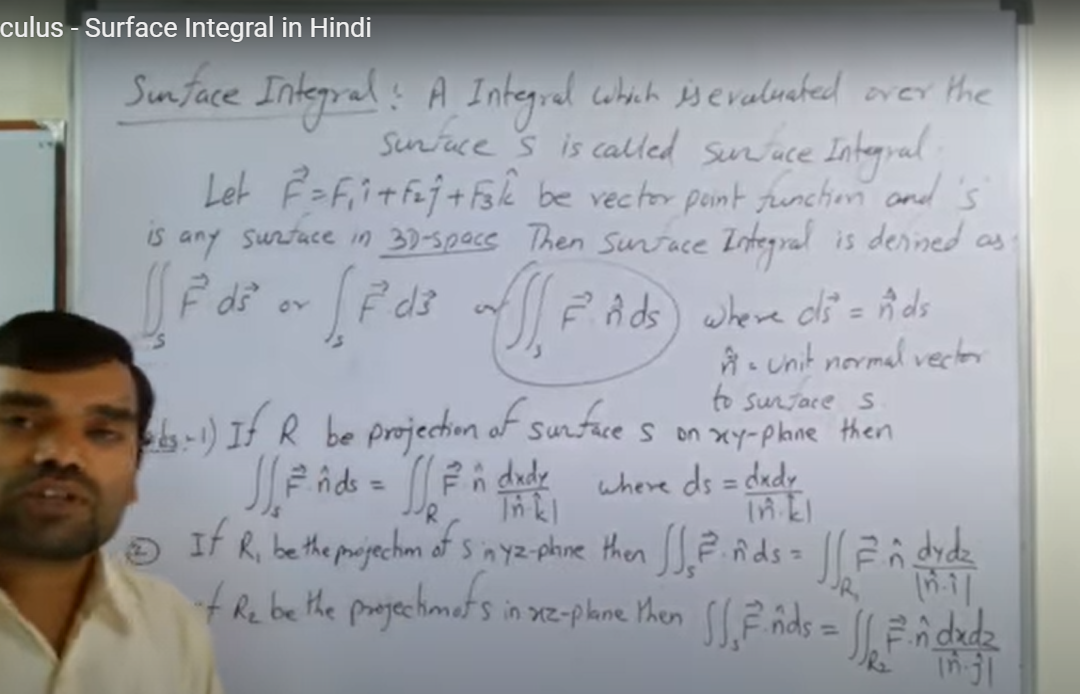 culus - Surface Integral in Hindi
Surface Integral : A Integral which is evaluated over the
surface S is called surface Integral.
Let F⃗ = F₁î + F₂ĵ + F₃k̂ be vector point function and 's'
is any surface in 3D-space Then Surface Integral is defined as
∬ₛ F⃗ ds⃗ or ∫ₛ F⃗ ds⃗ or ∭ₛ F⃗ . n̂ ds where ds⃗ = n̂ ds
n̂ = unit normal vector
to surface s
1) If R be projection of surface s on xy-plane then
∬ₛ F⃗ . n̂ ds = ∬_R F⃗ . n̂ dxdy/|n̂.k̂| where ds = dxdy/|n̂.k̂|
② If R₁ be the projection of s in yz-plane then ∬ₛ F⃗ . n̂ ds = ∬_R₁ F⃗ . n̂ dydz/|n̂.î|
R₂ be the projection of s in xz-plane then ∬ₛ F⃗ . n̂ ds = ∬_R₂ F⃗ . n̂ dxdz/|n̂.ĵ|